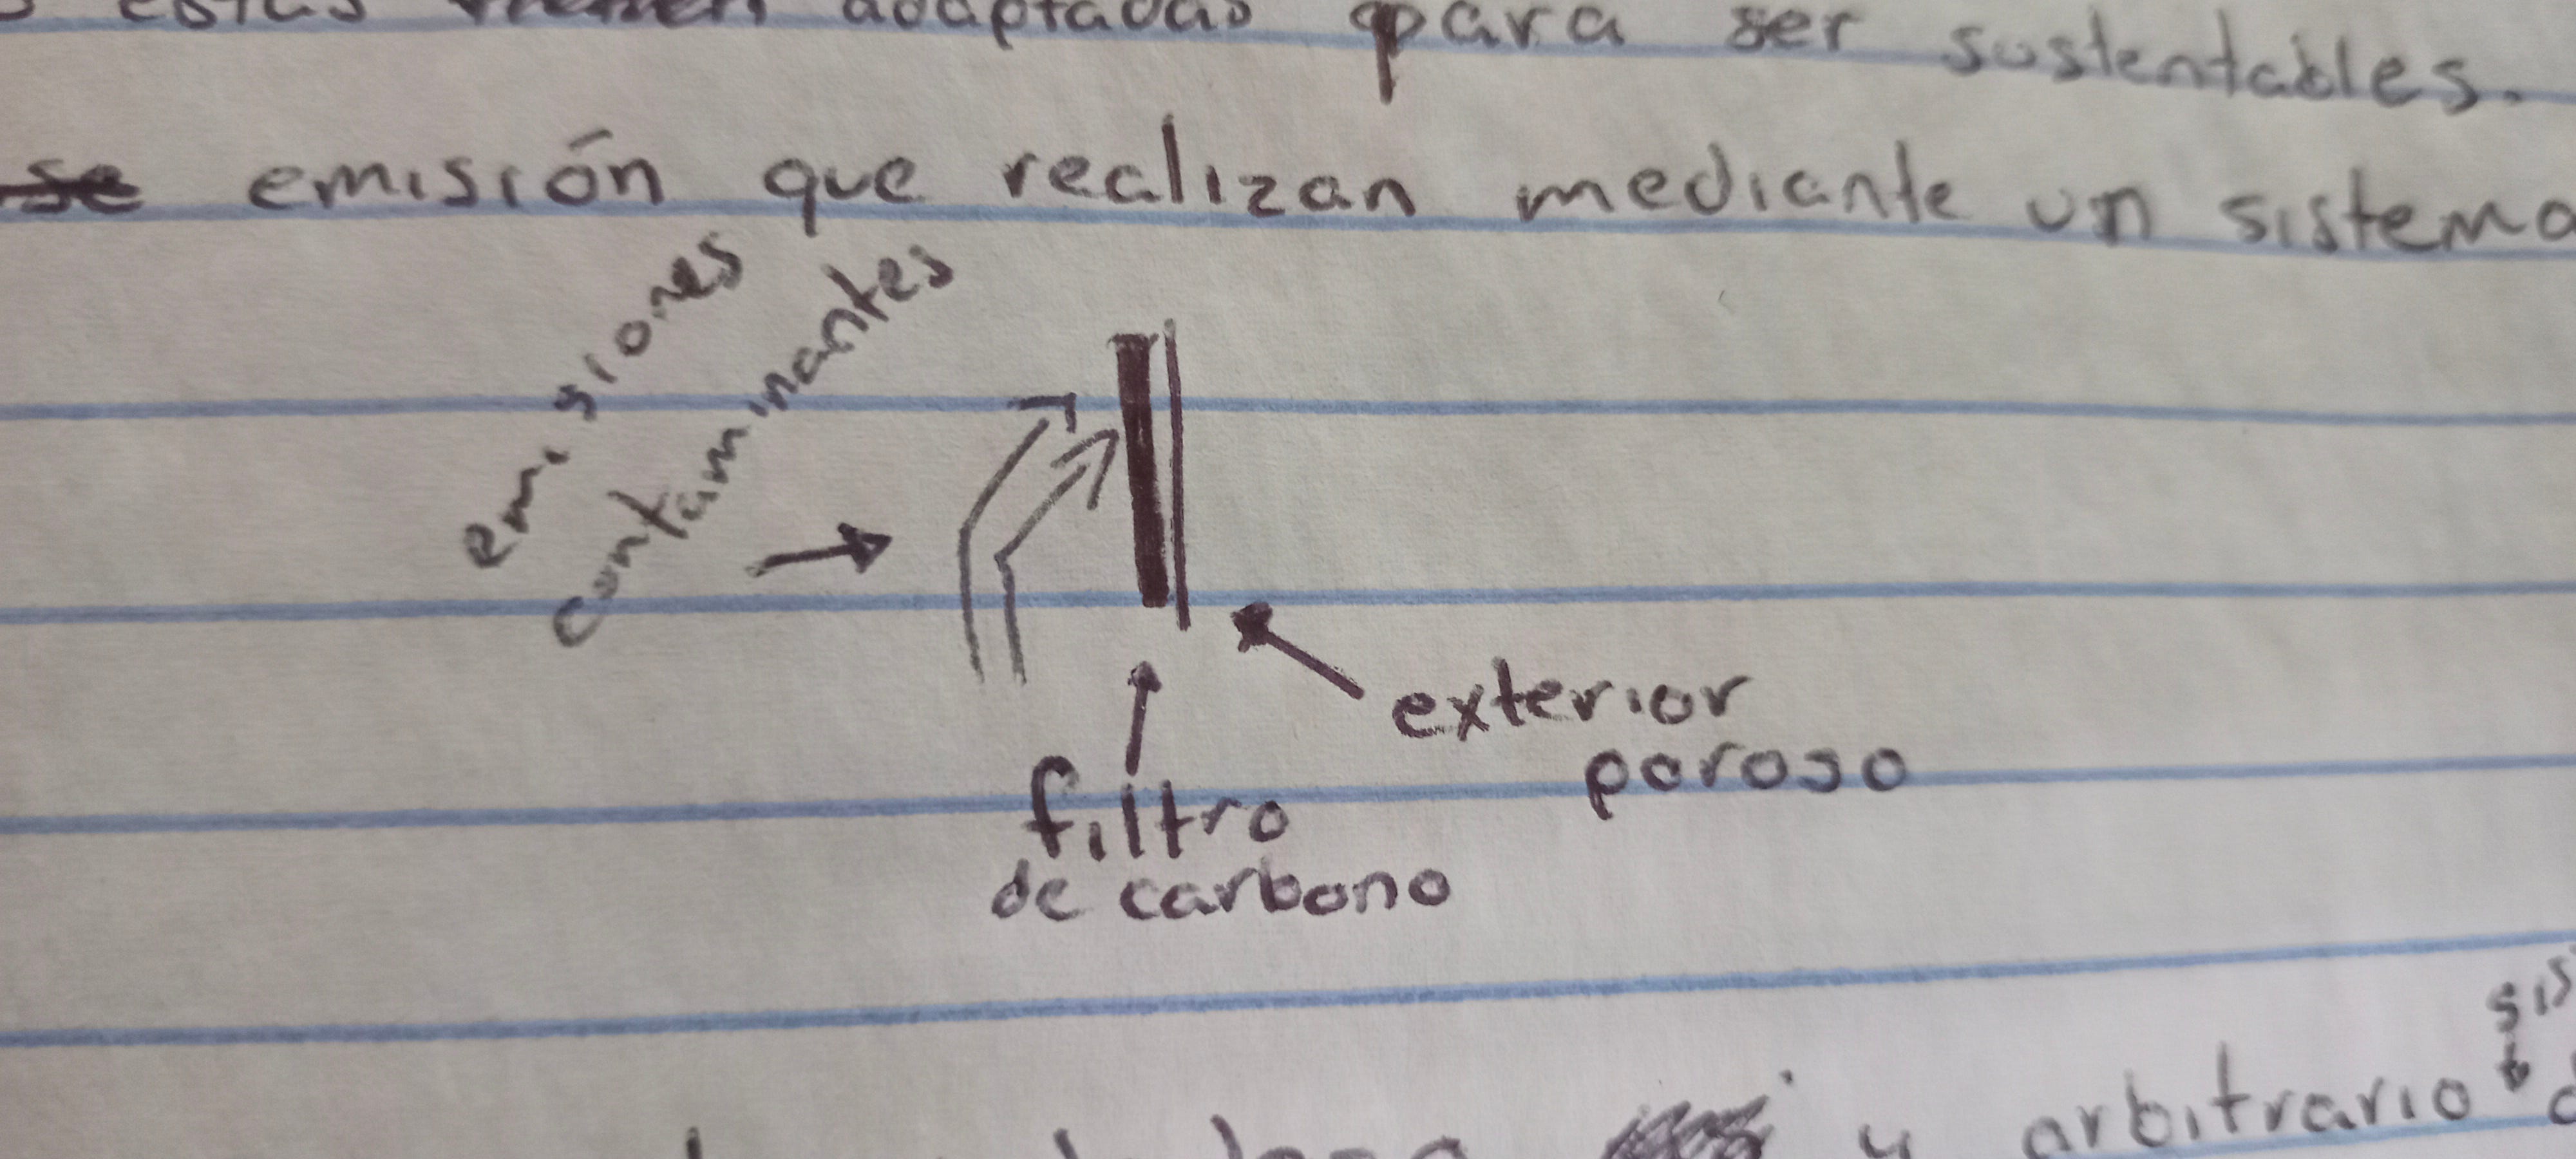 estas adaptadas para ser sustentables.
se emisión que realizan mediante un sistema
emisiones
contaminantes
exterior
poroso
filtro
de carbono
sis
y arbitrario